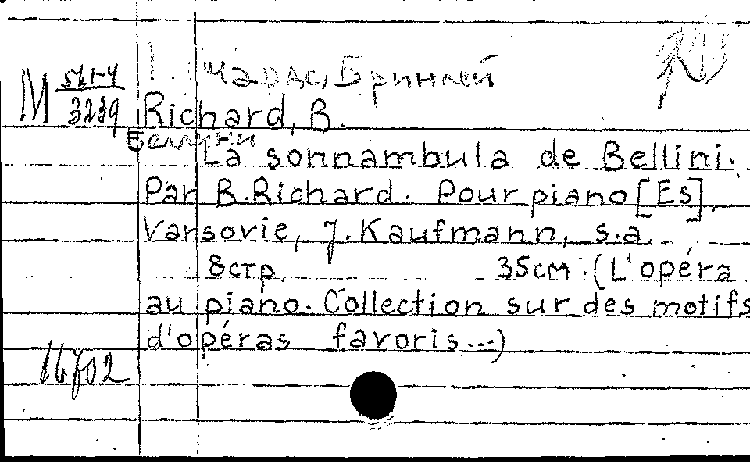 М 3239
Richard, B.
Беллини
La sonnambula de Bellini.
Par B. Richard. Pour piano [Es].
Varsovie, J. Kaufmann, s.a.
8стр. 35см. (L'opéra
au piano. Collection sur des motifs
d'opéras favoris...)
16702